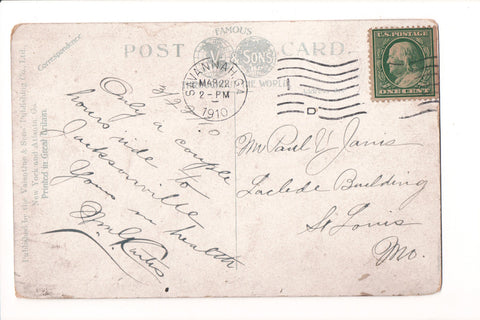 FAMOUS
POST CARD
V & SONS
THE WORLD
Correspondence
SAVANNAH, GA
MAR 22
2-PM
1910
D
U.S. POSTAGE
ONE CENT
3/22/10
Only a couple
hours ride to
Jacksonville
Yours in health
Wm G. Curtis
Mr Paul V. Janis
Laclede Building
St Louis
Mo.
Published by the Valentine & Sons Publishing Co., Ltd.,
New York and
Printed in Great Britain